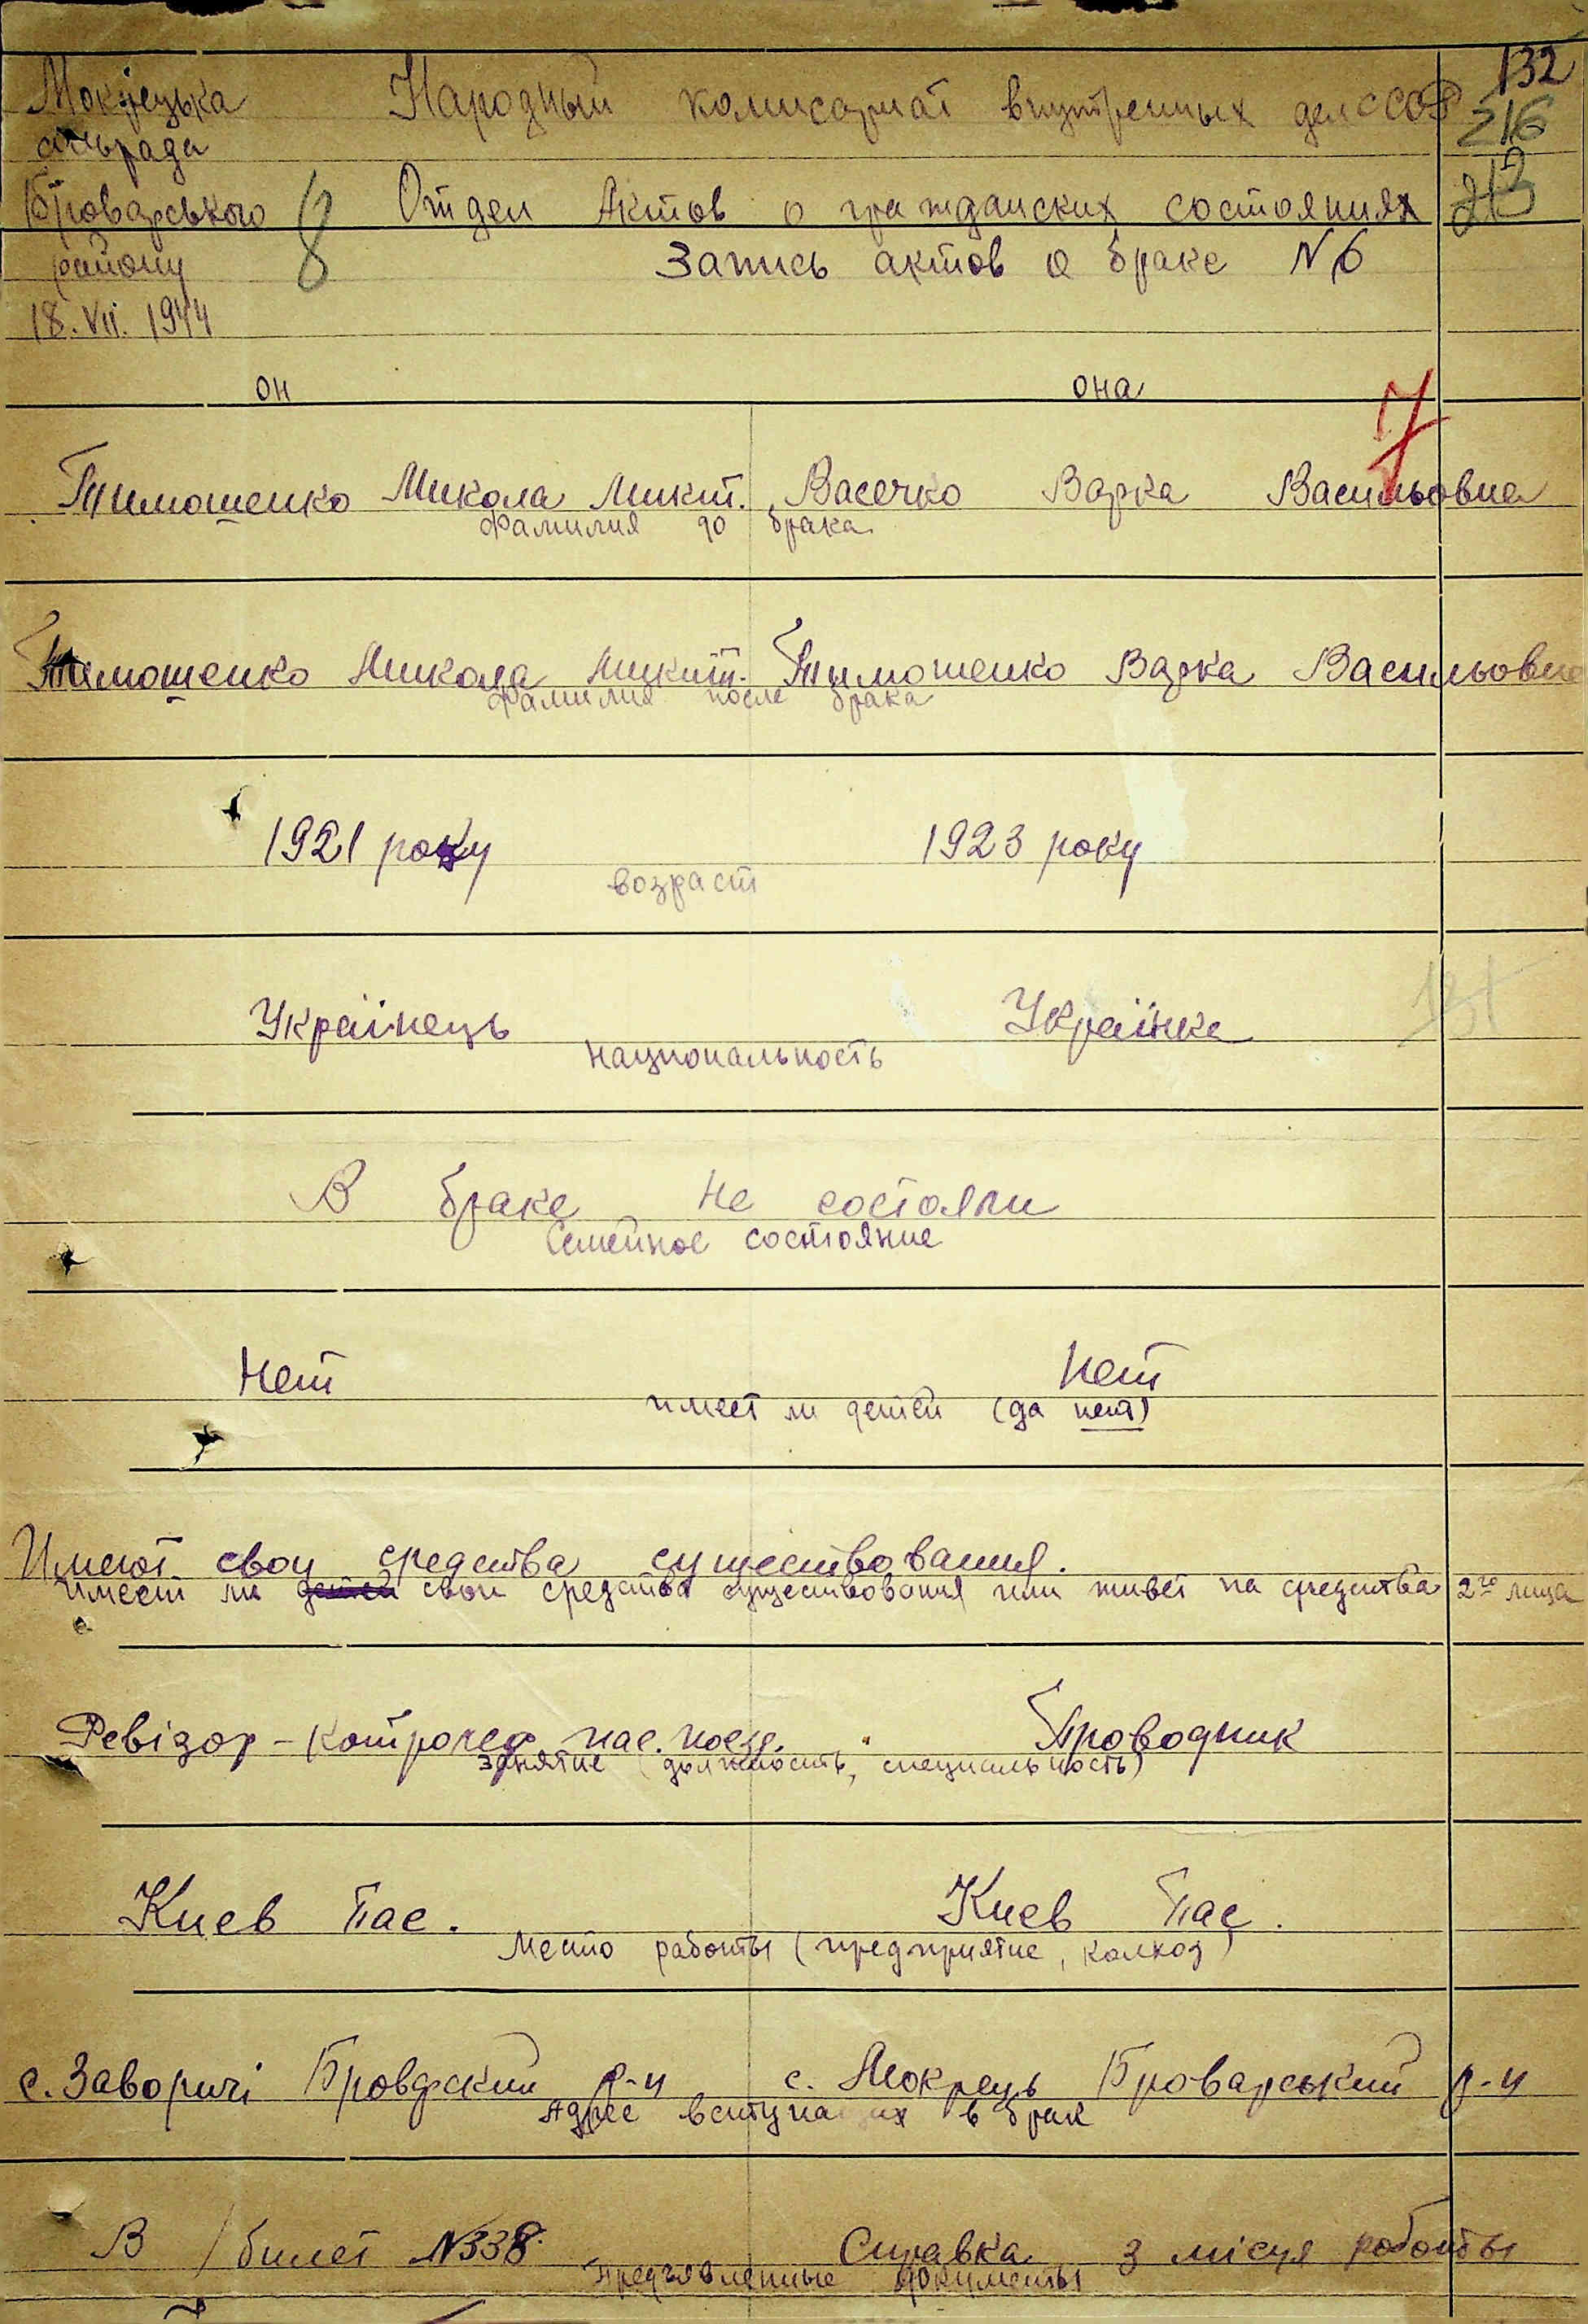 132
Мокрецька Народный комисариат внутренных дел СССР 216
сільрада
Броварського 8 Отдел Актов о гражданских состояниях 213
району Запись актов о браке N 6
18. VII. 1944
он она
7
Тимошенко Микола Микит. Васечко Варка Васильовна
Фамилия до брака
Тимошенко Микола Микит. Тимошенко Варка Васильовна
Фамилия после брака
1921 року 1923 року
возраст
Українець Українка
национальность
В браке не состояли
Семейное состояние
Нет Нет
имеет ли детей (да нет)
Имеют свои средства существования.
имеет ли свои средства существования или живет на средства 2го лица
Ревізор - Контролер пас. поезд. Проводник
занятие (должность, специальность)
Киев Пас. Киев Пас.
Место работы (предприятие, колхоз)
с. Заворичі Броварский р-н с. Мокрець Броварський р-н
Адрес вступающих в брак
В / билет N 338. Справка з місця роботы
Предъявленные документы